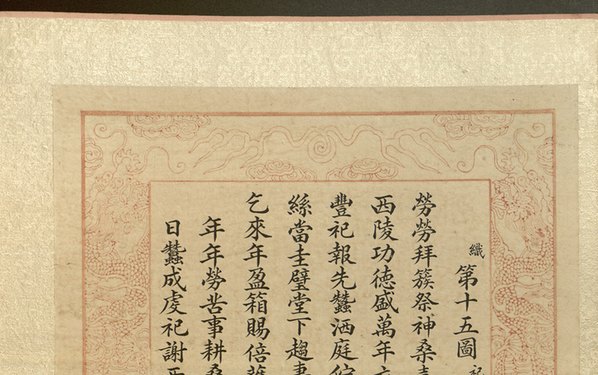 織
第十五圖
勞勞拜簇祭神桑
西陵功德盛萬年
豐祀報先蠶洒庭
絲當圭璧堂下趨
乞來年盈箱賜倍
年年勞苦事耕
日蠶成虔祀謝